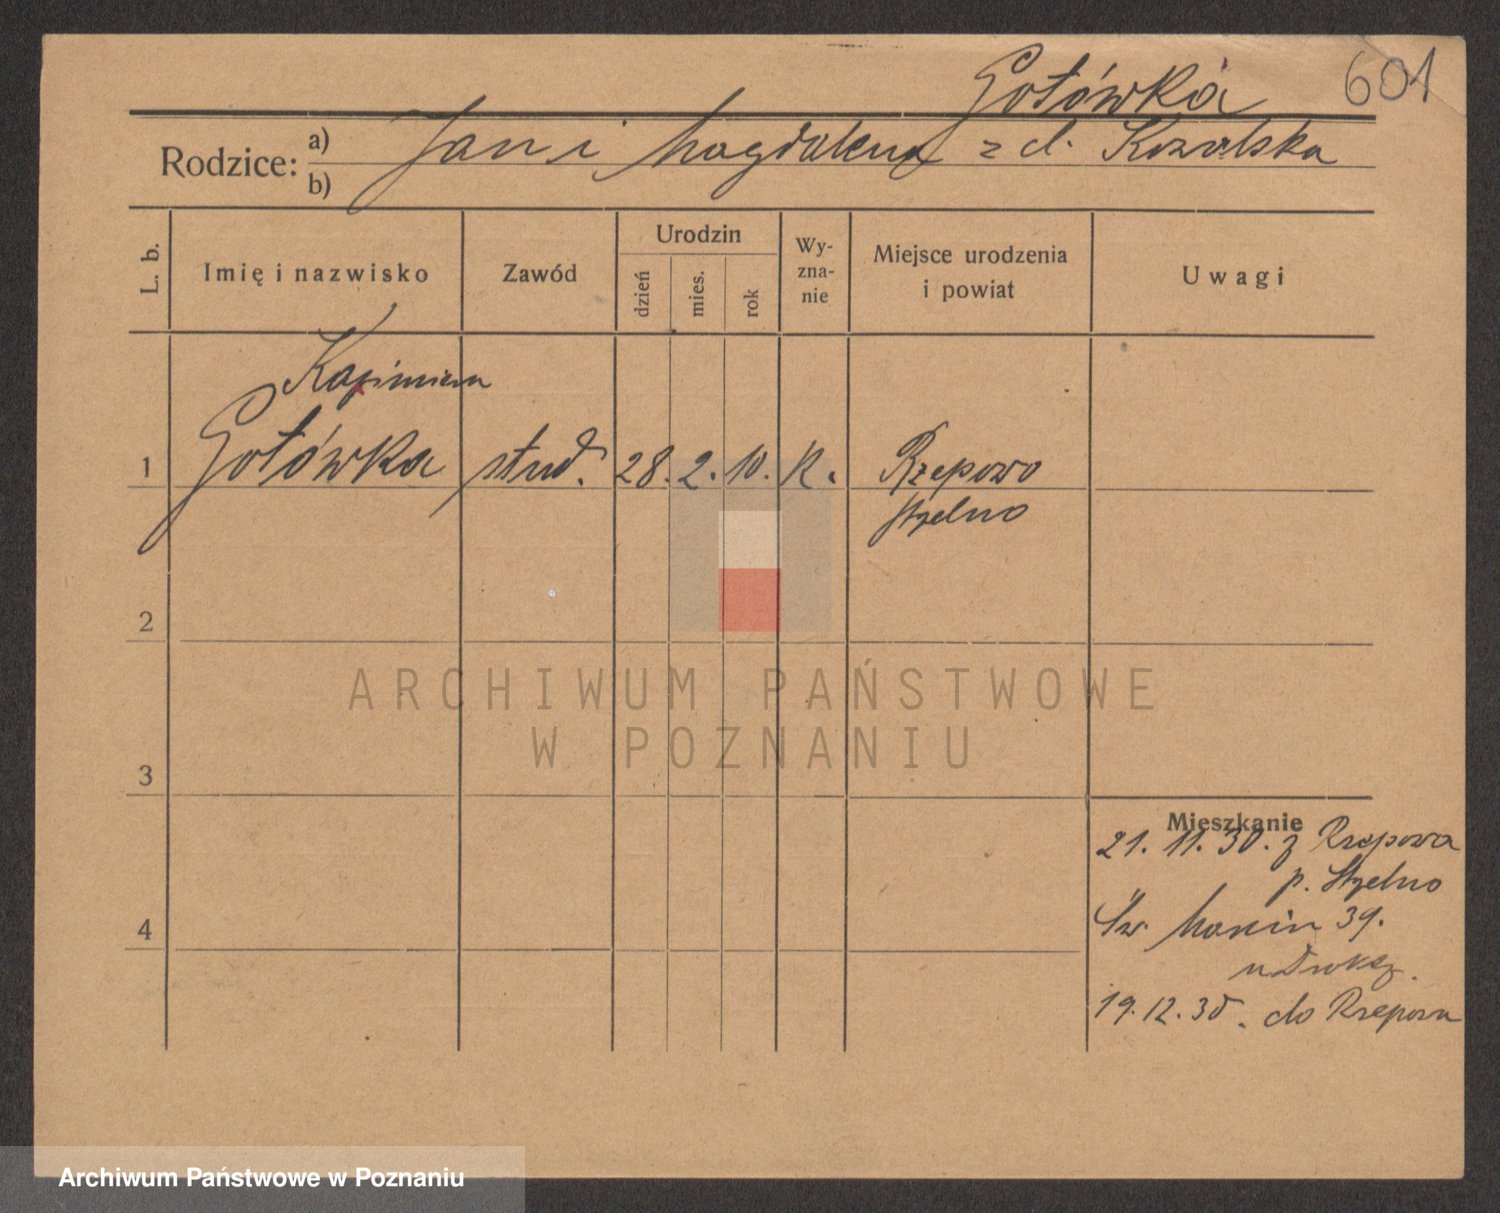 Gotówka 601
Rodzice: a) Jan i Magdalena z d. Kozalska
b)
L. b. Imię i nazwisko Zawód Urodzin dzień mies. rok Wyznanie Miejsce urodzenia i powiat Uwagi
Kazimierz
1 Gotówka stud. 28. 2. 10. K. Rzepowo
Strzelno
2
ARCHIWUM PAŃSTWOWE
W POZNANIU
3
Mieszkanie
21. 11. 30. z Rzepowa
p. Strzelno
4 Św. Marcin 39.
19. 12. 30. do Rzepowa
Archiwum Państwowe w Poznaniu